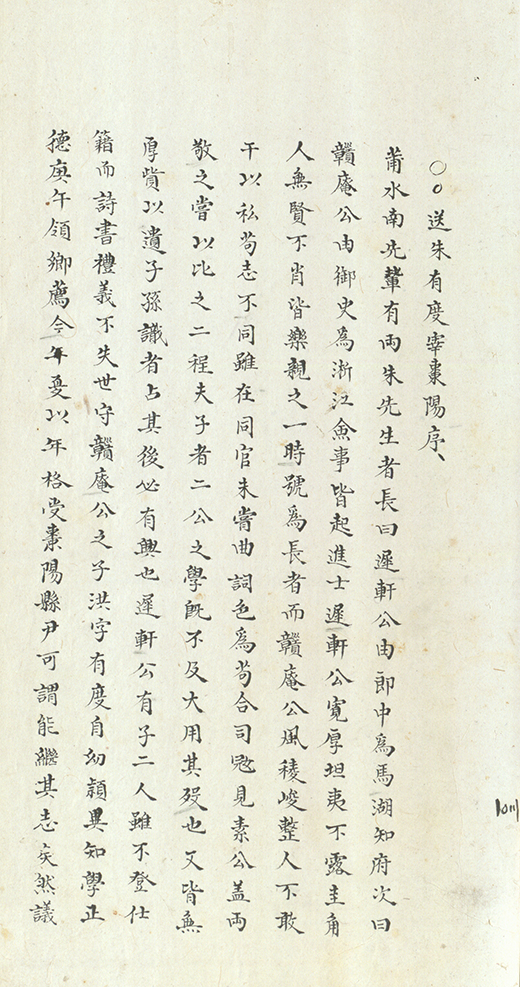 ○○送朱有度宰棗陽序、
莆水南先輩有两朱先生者長曰遲軒公由郎中為馬湖知府次曰
贛庵公由御史為浙江僉事皆起進士遲軒公寛厚坦夷不露圭角
人無賢不肖皆樂親之一時號為長者而贛庵公風稜峻整人不敢
干以私茍志不同雖在同官未嘗曲詞色為茍合司寇見素公盖两
敬之嘗以比之二程夫子者二公之學既不及大用其殁也又皆無
厚貲以遺子孫識者占其後必有興也遲軒公有子二人雖不登仕
籍而詩書禮義不失世守贛庵公之子洪字有度自幼頴異知學正
德庚午領鄉薦今年戛以年格受棗陽縣尹可謂能繼其志矣然議
1011